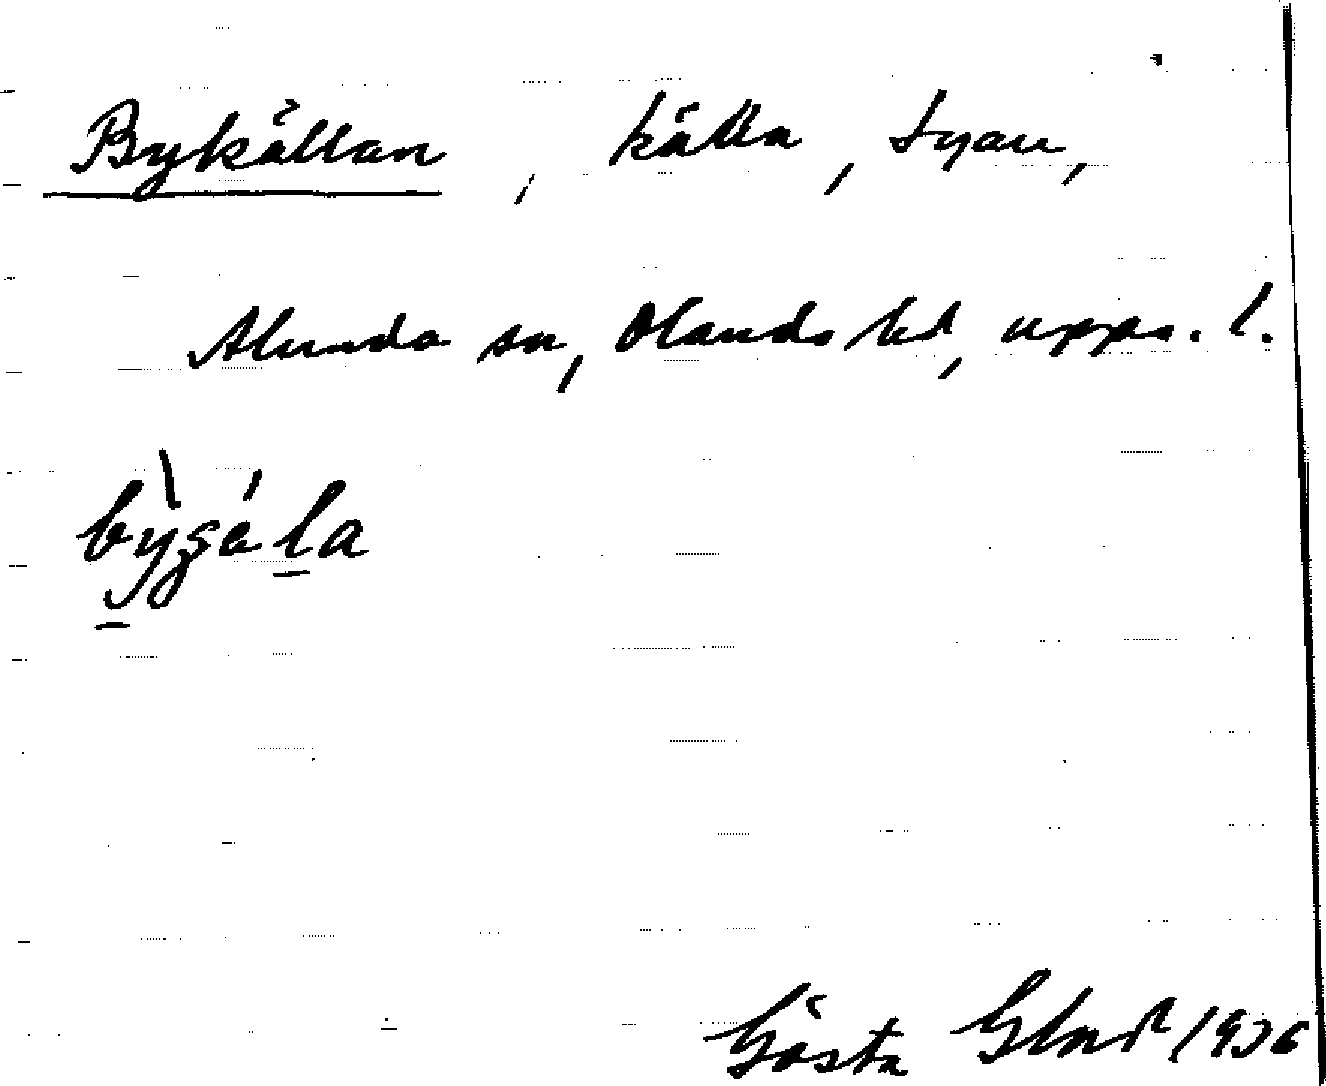 Bykällan, källa, Tyan,
Alunda sn, Olands hd, Upps. l.
Gösta 1936